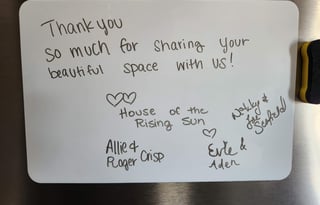 Thank you
so much for sharing your
beautiful space with us!
House of the
Rising Sun
Allie &
Roger Crisp
Evie &
Aden
&